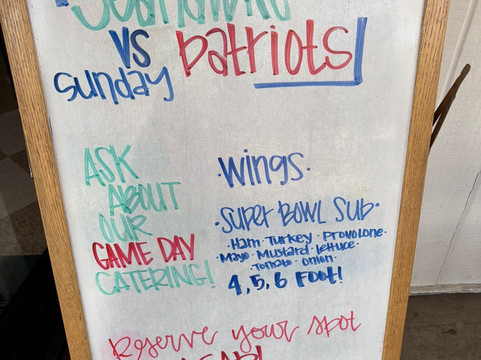 VS patriots
Sunday
ASK
ABOUT
OUR
GAME DAY
CATERING!
·wings·
·SUPER BOWL SUB·
·Ham·Turkey·Provolone·
·Mayo·Mustard·lettuce·
·Tomato·onion·
4,5,6 FOOT!
Reserve your spot